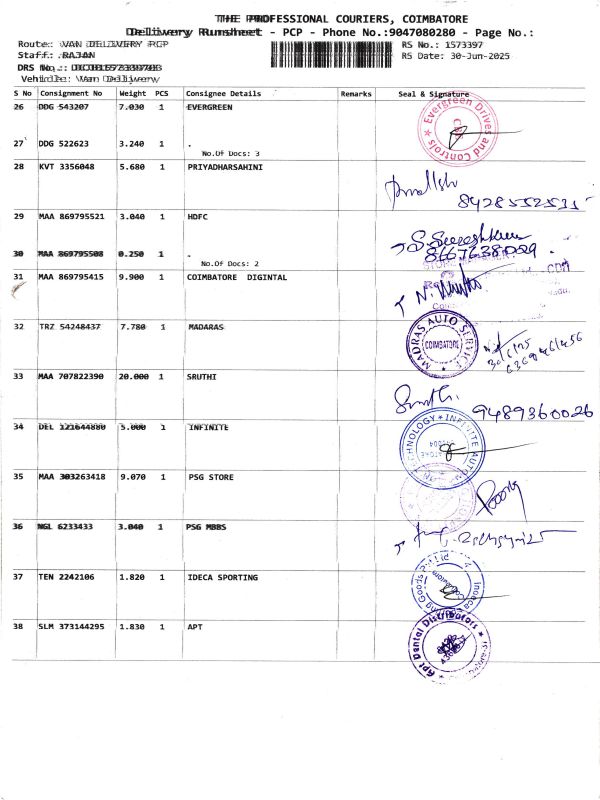 THE PROFESSIONAL COURIERS, COIMBATORE
Delivery Runsheet - PCP - Phone No.:9047080280 - Page No.:
Route: VAN DELIVERY PCP
RS No.: 1573397
Staff: RAJAN
RS Date: 30-Jun-2025
DRS No.:
Vehicle: Van Delivery
S No Consignment No Weight PCS Consignee Details Remarks Seal & Signature
26 DDG 543207 7.030 1 EVERGREEN
Evergreen Drives and Controls
27 DDG 522623 3.240 1 .
No.Of Docs: 3
28 KVT 3356048 5.680 1 PRIYADHARSAHINI
29 MAA 869795521 3.040 1 HDFC
30 MAA 869795508 0.250 1 .
No.Of Docs: 2
31 MAA 869795415 9.900 1 COIMBATORE DIGINTAL
32 TRZ 54248437 7.780 1 MADARAS
MADRAS AUTO SERVICE
COIMBATORE
30/6/25
33 MAA 707822390 20.000 1 SRUTHI
9489360026
34 DEL 121644880 5.000 1 INFINITE
35 MAA 303263418 9.070 1 PSG STORE
36 NGL 6233433 3.040 1 PSG MBBS
37 TEN 2242106 1.820 1 IDECA SPORTING
38 SLM 373144295 1.830 1 APT
Apt Dental Distributors